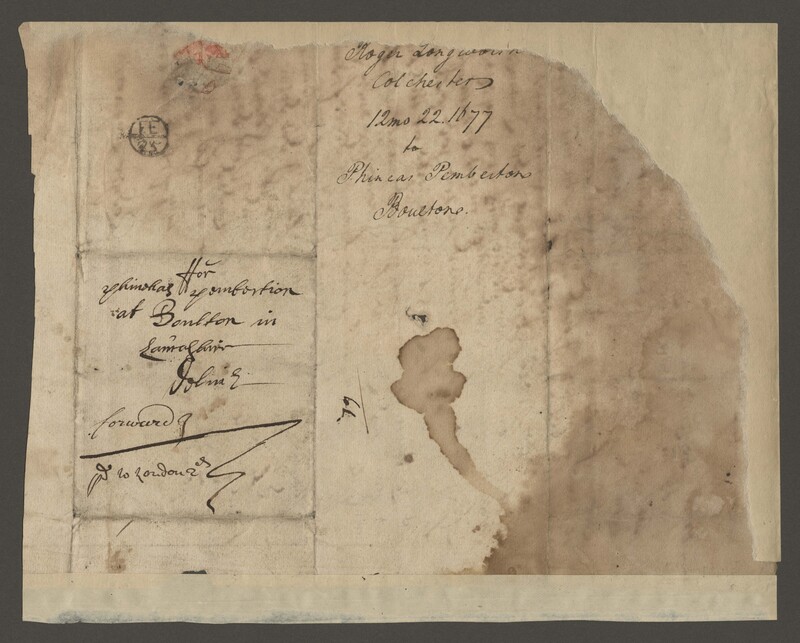 Roger Longworth
Colchester
12mo 22. 1677
to
Phineas Pemberton
Boulton.
FE
25
ffor
phinehas pembertton
at Boulton in
Lancashire
forward
pd to London 2d